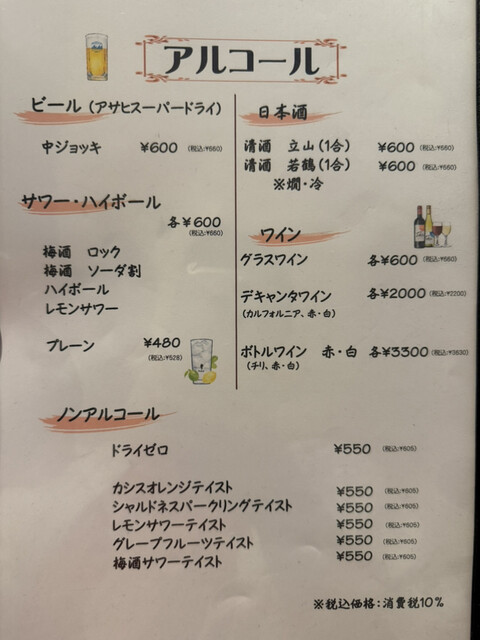 アルコール
ビール（アサヒスーパードライ）
中ジョッキ ¥600（税込:¥660）
サワー・ハイボール
各¥600
（税込:¥660）
梅酒 ロック
梅酒 ソーダ割
ハイボール
レモンサワー
プレーン ¥480
（税込:¥528）
日本酒
清酒 立山（1合） ¥600（税込:¥660）
清酒 若鶴（1合） ¥600（税込:¥660）
※燗・冷
ワイン
グラスワイン 各¥600（税込:¥660）
デキャンタワイン 各¥2000（税込:¥2200）
（カルフォルニア、赤・白）
ボトルワイン 赤・白 各¥3300（税込:¥3630）
（チリ、赤・白）
ノンアルコール
ドライゼロ ¥550（税込:¥605）
カシスオレンジテイスト ¥550（税込:¥605）
シャルドネスパークリングテイスト ¥550（税込:¥605）
レモンサワーテイスト ¥550（税込:¥605）
グレープフルーツテイスト ¥550（税込:¥605）
梅酒サワーテイスト ¥550（税込:¥605）
※税込価格：消費税10％